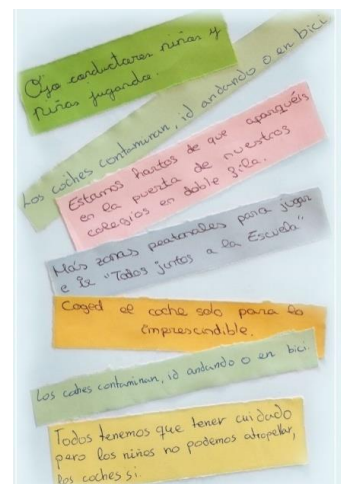 Ojo conductores niños y
niñas jugando.
Los coches contaminan, id andando o en bici
Estamos hartos de que aparquéis
en la puerta de nuestros
colegios en doble fila.
Más zonas peatonales para jugar
e ir "Todos juntos a la Escuela"
Coged el coche solo para lo
imprescindible.
Los coches contaminan, id andando o en bici.
Todos tenemos que tener cuidado
pero los niños no podemos atropellar,
los coches si.